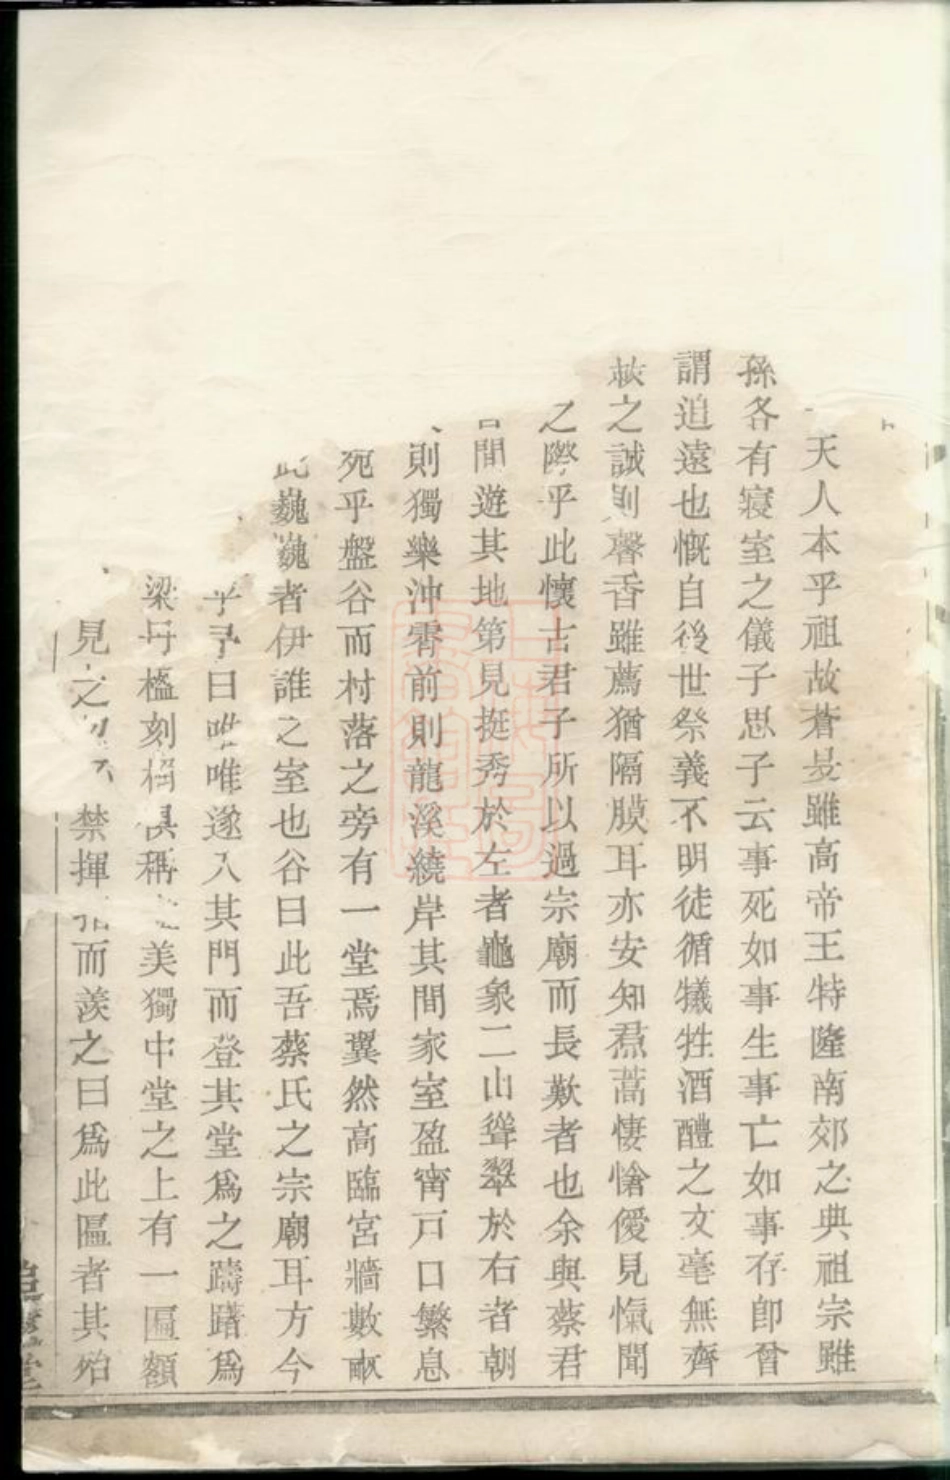 天人本乎祖故蒼旻雖高帝王特隆南郊之典祖宗雖
孫各有寢室之儀子思子云事死如事生事亡如事存即曾
謂追遠也慨自後世祭義不明徒循犧牲酒醴之文毫無齊
之誠則馨香雖薦猶隔膜耳亦安知焄蒿悽愴僾見愾聞
之際乎此懷古君子所以過宗廟而長歎者也余與蔡君
間遊其地第見挺秀於左者龜象二山聳翠於右者朝
則獨樂沖霄前則龍溪繞岸其間家室盈甯戸口繁息
宛乎盤谷而村落之旁有一堂焉翼然高臨宮牆數畝
此巍巍者伊誰之室也谷曰此吾蔡氏之宗廟耳方今
乎予曰唯唯遂入其門而登其堂爲之躊躇爲
梁丹楹刻桷俱稱美獨中堂之上有一匾額
見之禁揮而羨之曰爲此匾者其殆
追遠堂